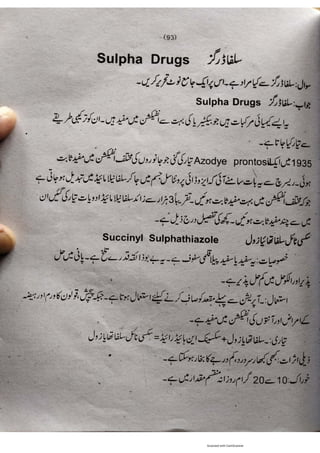 (93)
Sulpha Drugs سلفا ڈرگز
سوال: سلفا ڈرگز سے کیا مراد ہے۔ اس پر ایک جامع نوٹ تحریر کریں۔
جواب: سلفا ڈرگز Sulpha Drugs
یہ ایسے کیمیائی مرکبات ہیں جو بیکٹیریا کی بہت سے انفیکشن میں مفید ہیں۔ ان کو ترکیبی طریقے
سے تیار کیا جاتا ہے۔
1935 میں ایک Azodye prontosil تیار کی گئی جو جانوروں کی مختلف انفیکشن میں مفید ثابت
ہوئی۔ ریسرچ سے یہ بات سامنے آئی کہ ایزوڈائی پرونٹاسل جسم میں جا کر سلفانیلامائیڈ میں تبدیل ہو جاتی ہے
جو کہ مختلف انفیکشن میں بہت مفید ثابت ہوئیں۔ تقریباً 5 ہزار سے زائد سلفانیلامائیڈ ادویات تیار کی گئیں ان
میں سے چند مفید ثابت ہوئیں۔ کچھ کی تفصیل درج ذیل ہے۔
سکسی نائل سلفا تھایازول Succinyl Sulphathiazole
خصوصیات: یہ سفید یا سفید پیلا قلمی سفوف ہے۔ یہ بے بو ذائقہ قدرے تلخ ہے۔ پانی میں حل
پذیر اور الکوحل میں کم حل پذیر ہے۔
استعمال: آپریشن سے پہلے مقعد کو صاف کرنے کیلئے استعمال ہوتا ہے۔ جبکہ پیچش، قولون کا ورم اور ہیضہ
کے امراض اور آنتوں کی انفیکشن میں مفید ہے۔
تیاری: ۔ سلفا تھایازول + سکسینک این ہائیڈرائیڈ = سکسی نائل سلفا تھایازول
ذیلی اثرات: کبھی کبھار سر درد، کم درجے کا بخار ہو سکتا ہے۔
خوراک: 10 سے 20 گرام روزانہ منقسم مقدار میں ہے۔
Scanned with CamScanner